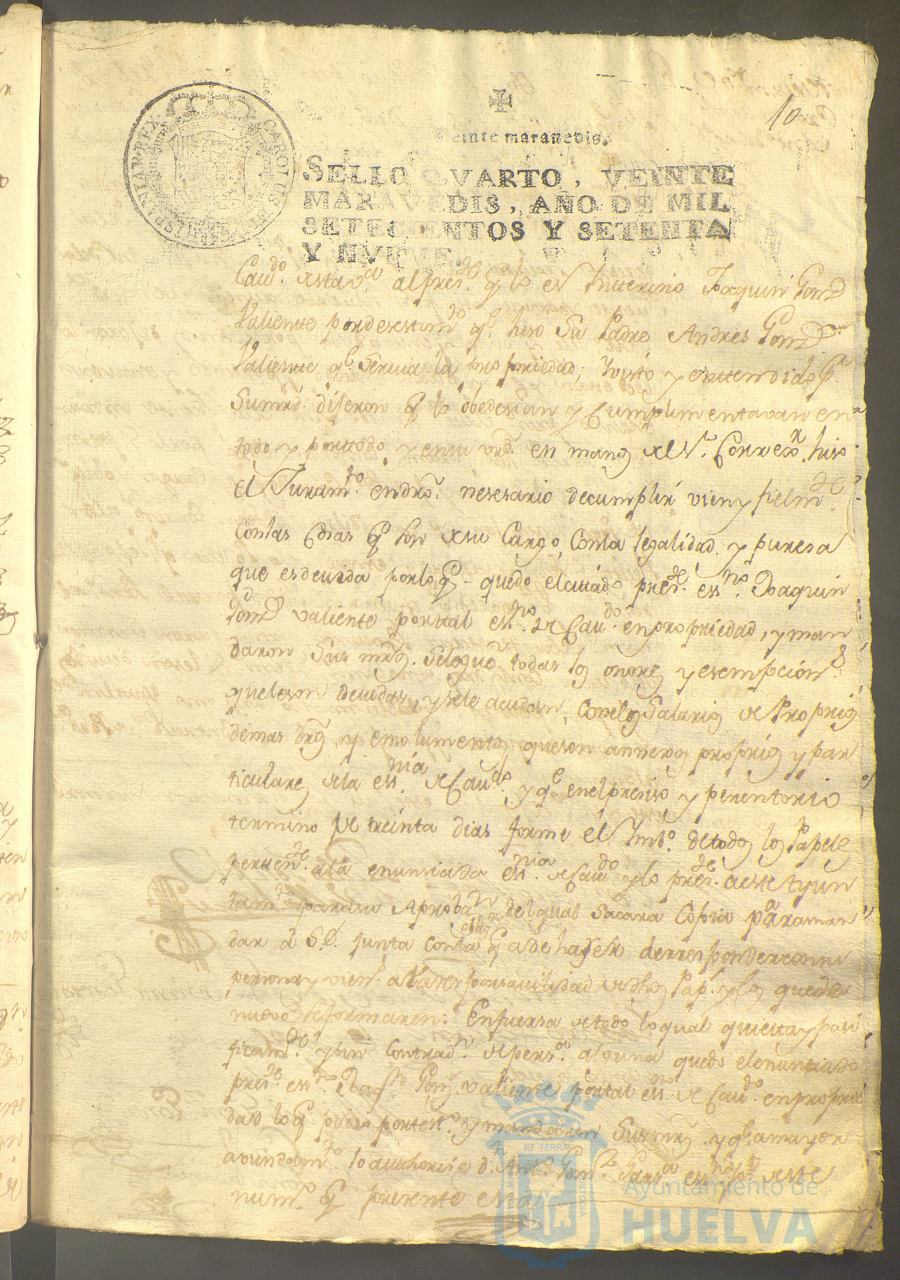 10
CAROLUS HISPANIAR REX
Veinte maravedis.
SELLO QVARTO, VEINTE
MARAVEDIS, AÑO DE MIL
SETECIENTOS Y SETENTA
Y NUEVE.
Cavdo. al preste. q lo es Ynterino Joaquin Gomz
Valiente por desestimto q. hiso Su Padre Andres Gomz
Valiente q. Servia la propriedad; Visto y entendido pr.
Sus mrds. dijeron q lo obedesian y Cumplimentavan en
todo y por todo y en su vrd. en manos del Sr. Correxr. hiso
el Juramto. en dro. nesesario de cumplir vien y fielmte.
con las cosas q son de su Cargo, con la legalidad y puresa
que es devida por lo q. quedo el citado preste. essno. Joaquin
Gomz valiente por tal essno. de Cavdo. en propriedad, y man
daron Sus mrds. Se le guen. todas los onores y esempcions.
que le son devidas, y se le acudan, con los Salarios de Proprios
demas dros. y emolumentos que son annexos proprios y par
ticulares de la essnia. de Cavdo. y qe. en el presiso y perentorio
termino de treinta dias forme el Ymbo. de todos los Papeles
pertente. a la enunciada essnia. de Cavdo. y lo preste. a este Ayun
tamto. para su Aprobn. del qual Sacara Copia para man
dar a Sd. junta con la obligon q a de haser de responder con su
persona y viens. a la responsavilidad de dhos Paps. y los que de
nuevo se formaren. En fuersa de todo lo qual quieta y pasi
ficamte. y sin contradn. de persona alguna quedo el enunciado
preste. essno. Joaqn. Gomz valiente por tal essno. de Cavdo. en proprie
dad lo q pidio por testo. y mandaron Sus mrds. y q. a mayor
avundamto. lo authorise dn. Anto. Gomz Garsa essno. pco. de este
num. q presente esta
Ayuntamiento de
HUELVA